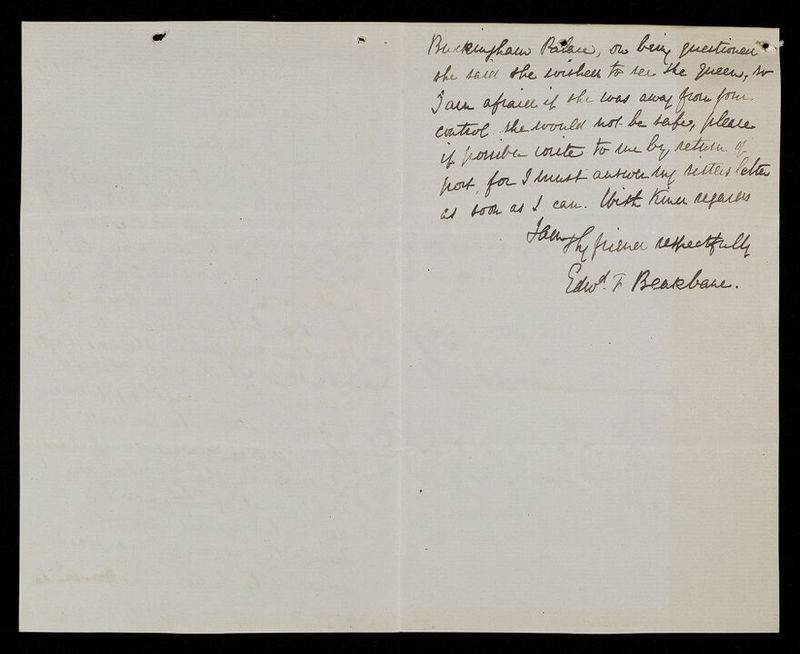 Buckingham Palace, on being questioned
she said she wished to see the Queen, so
I am afraid if she was away from your
control she would not be safe, please
if possible write to me by return of
post, for I must answer my sisters letter
as soon as I can. With kind regards
I am thy friend respectfully
Edwd. F Beakbane.